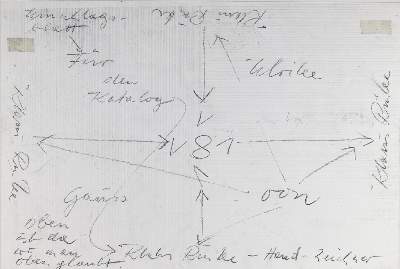 Umschlags-
blatt
Für
den
Katalog
Klaus Rinke
Klaus Rinke
Klaus Rinke
V81
von
oben
ist da
wo man
oben glaubt.
Klaus Rinke - Hand-Zeichner